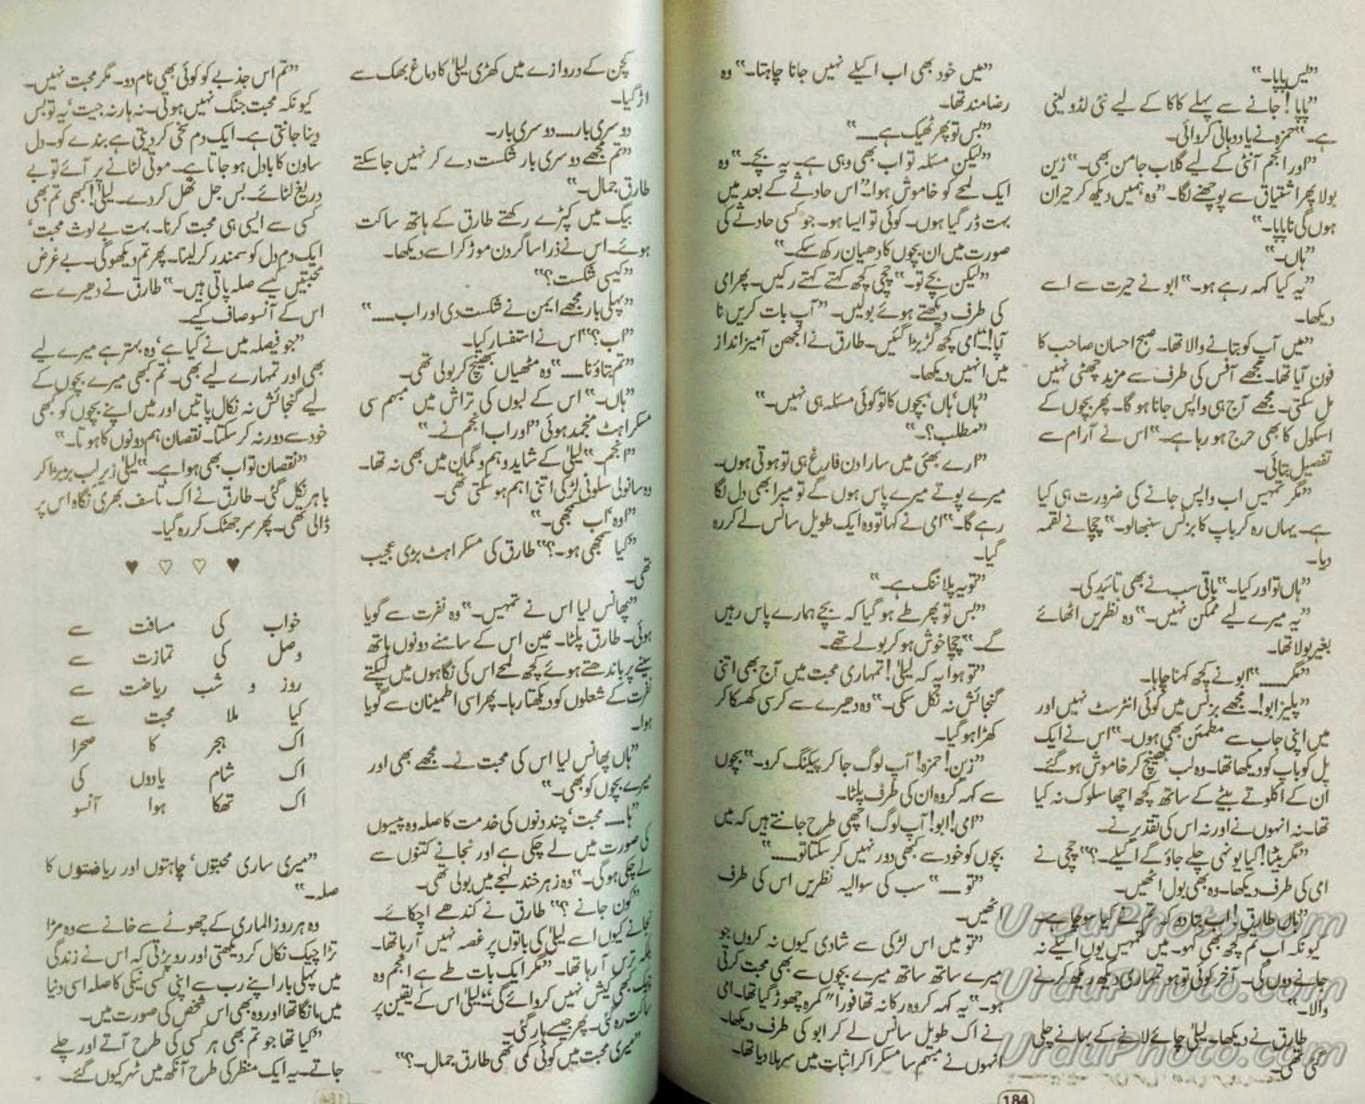 ”لیس پاپا۔“
”پاپا! جانے سے پہلے کاکا کے لیے نئی لڈو لینی
ہے۔“ حمزہ نے یاد دہانی کروائی۔
”اور انجم آنٹی کے لیے گلاب جامن بھی۔“ زین
بولا پھر اشتیاق سے پوچھنے لگا۔ ”وہ ہمیں دیکھ کر حیران
ہوں گی نا پاپا۔“
”ہاں۔“
”یہ کیا کہہ رہے ہو۔“ ابو نے حیرت سے اسے
دیکھا۔
”میں آپ کو بتانے والا تھا۔ صبح احسان صاحب کا
فون آیا تھا۔ مجھے آفس کی طرف سے مزید چھٹی نہیں
مل سکتی۔ مجھے آج ہی واپس جانا ہو گا۔ پھر بچوں کے
اسکول کا بھی حرج ہو رہا ہے۔“ اس نے آرام سے
تفصیل بتائی۔
”مگر تمہیں اب واپس جانے کی ضرورت ہی کیا
ہے۔ یہاں رہ کر باپ کا بزنس سنبھالو۔“ چچا نے لقمہ
دیا۔
”ہاں تو اور کیا۔“ باقی سب نے بھی تائید کی۔
”یہ میرے لیے ممکن نہیں۔“ وہ نظریں اٹھائے
بغیر بولا تھا۔
”مگر۔۔۔۔“ ابو نے کچھ کہنا چاہا۔
”پلیز ابو! مجھے بزنس میں کوئی انٹرسٹ نہیں اور
میں اپنی جاب سے مطمئن بھی ہوں۔“ اس نے ایک
پل کو باپ کو دیکھا تھا۔ وہ لب بھینچ کر خاموش ہو گئے۔
ان کے اکلوتے بیٹے کے ساتھ کچھ اچھا سلوک نہ کیا
تھا۔ نہ انہوں نے اور نہ اس کی تقدیر نے۔
”مگر بیٹا! کیا یونہی چلے جاؤ گے اکیلے۔؟“ چچی نے
امی کی طرف دیکھا۔ وہ بھی بول اٹھیں۔
”ہاں طارق! اب بتا دو کہ تم نے کیا سوچا ہے۔
کیونکہ اب تم کچھ بھی کہو۔ میں تمہیں یوں اکیلے نہ
جانے دوں گی۔ آخر کوئی تو ہو تمہاری دیکھ ریکھ کرنے
والا۔“
طارق نے دیکھا۔ لیلیٰ چائے لانے کے بہانے چلی
گئی تھی۔
”میں خود بھی اب اکیلے نہیں جانا چاہتا۔“ وہ
رضامند تھا۔
”بس تو پھر ٹھیک ہے۔۔۔۔“
”لیکن مسئلہ تو اب بھی وہی ہے۔ یہ بچے۔“ وہ
ایک لمحے کو خاموش ہوا۔ ”اس حادثے کے بعد میں
بہت ڈر گیا ہوں۔ کوئی تو ایسا ہو۔ جو کسی حادثے کی
صورت میں ان بچوں کا دھیان رکھ سکے۔“
”لیکن بچے تو۔“ چچی کچھ کہتے کہتے رکیں۔ پھر امی
کی طرف دیکھتے ہوئے بولیں۔ ”آپ بات کریں نا
آپا!“ امی کچھ گڑبڑا گئیں۔ طارق نے الجھن آمیز انداز
میں انہیں دیکھا۔
”ہاں‘ ہاں‘ بچوں کا تو کوئی مسئلہ ہی نہیں۔“
”مطلب؟۔“
”ارے بھئی میں سارا دن فارغ ہی تو ہوتی ہوں۔
میرے پوتے میرے پاس ہوں گے تو میرا بھی دل لگا
رہے گا۔“ امی نے کہا تو وہ ایک طویل سانس لے کر رہ
گیا۔
”تو یہ پلاننگ ہے۔“
”بس تو پھر طے ہو گیا کہ بچے ہمارے پاس رہیں
گے۔“ چچا خوش ہو کر بولے تھے۔
”تو ہوا یہ کہ لیلیٰ! تمہاری محبت میں آج بھی اتنی
گنجائش نہ نکل سکی۔“ وہ دھیرے سے کرسی کھسکا کر
کھڑا ہو گیا۔
”زین! حمزہ! آپ لوگ جا کر پیکنگ کرو۔“ بچوں
سے کہہ کر وہ ان کی طرف پلٹا۔
”امی! ابو! آپ لوگ اچھی طرح جانتے ہیں کہ میں
بچوں کو خود سے کبھی دور نہیں کر سکتا تو۔۔۔۔“
”تو۔۔۔۔“ سب کی سوالیہ نظریں اس کی طرف
اٹھیں۔
”تو میں اس لڑکی سے شادی کیوں نہ کروں جو
میرے ساتھ ساتھ میرے بچوں سے بھی محبت کرتی
ہو۔“ یہ کہہ کر وہ رکا نہ تھا فورا“ کمرہ چھوڑ گیا تھا۔ امی
نے اک طویل سانس لے کر ابو کی طرف دیکھا۔
انہوں نے مبہم سا مسکرا کر اثبات میں سر ہلا دیا تھا۔
184
کچن کے دروازے میں کھڑی لیلیٰ کا دماغ بھک سے
اڑ گیا۔
دوسری بار۔۔۔۔ دوسری بار۔
”تم مجھے دوسری بار شکست دے کر نہیں جا سکتے
طارق جمال۔“
بیگ میں کپڑے رکھتے طارق کے ہاتھ ساکت
ہوئے۔ اس نے ذرا سا گردن موڑ کر اسے دیکھا۔
”کیسی شکست؟“
”پہلی بار مجھے ایمن نے شکست دی اور اب۔۔۔۔“
”اب؟“ اس نے استفسار کیا۔
”تم بتاؤ نا۔۔۔۔“ وہ مٹھیاں بھینچ کر بولی تھی۔
”ہاں۔“ اس کے لبوں کی تراش میں مبہم سی
مسکراہٹ منجمد ہوئی ”اور اب انجم نے۔“
”انجم۔“ لیلیٰ کے شاید وہم و گمان میں بھی نہ تھا۔
وہ سانولی سلونی لڑکی اتنی اہم ہو سکتی تھی۔
”اوہ‘ اب سمجھی۔“
”کیا سمجھی ہو۔؟“ طارق کی مسکراہٹ بڑی عجیب
تھی۔
”پھانس لیا اس نے تمہیں۔“ وہ نفرت سے گویا
ہوئی۔ طارق پلٹا۔ عین اس کے سامنے دونوں ہاتھ
سینے پر باندھتے ہوئے کچھ لمحے اس کی نگاہوں میں لپکتے
نفرت کے شعلوں کو دیکھتا رہا۔ پھر اسی اطمینان سے گویا
ہوا۔
”ہاں پھانس لیا اس کی محبت نے۔ مجھے بھی اور
میرے بچوں کو بھی۔“
”ہا۔۔۔۔ محبت‘ چند دنوں کی خدمت کا صلہ وہ پیسوں
کی صورت میں لے چکی ہے اور نجانے کتنوں سے
لے چکی ہو گی۔“ وہ زہر خند لہجے میں بولی تھی۔
”کون جانے؟“ طارق نے کندھے اچکائے۔
نجانے کیوں اسے لیلیٰ کی باتوں پر غصہ نہیں آ رہا تھا۔
بلکہ ترس آ رہا تھا۔ ”مگر ایک بات طے ہے انجم وہ
چیک بھی کیش نہیں کروائے گی۔“ لیلیٰ اس کے یقین پر
ساکت رہ گئی۔ پھر جیسے ہار گئی۔
”میری محبت میں کوئی کمی تھی طارق جمال۔؟“
”تم اس جذبے کو کوئی بھی نام دو۔ مگر محبت نہیں۔
کیونکہ محبت جنگ نہیں ہوتی۔ نہ ہار نہ جیت‘ یہ تو بس
دینا جانتی ہے۔ ایک دم سخی کر دیتی ہے بندے کو۔ دل
ساون کا بادل ہو جاتا ہے۔ موتی لٹانے پر آئے تو بے
دریغ لٹائے۔ بس جل تھل کر دے۔ لیلیٰ! کبھی تم بھی
کسی سے ایسی ہی محبت کرنا۔ بہت بے لوث محبت‘
ایک دم دل کو سمندر کر لینا۔ پھر تم دیکھو گی۔ بے غرض
محبتیں کیسے صلہ پاتی ہیں۔“ طارق نے دھیرے سے
اس کے آنسو صاف کیے۔
”جو فیصلہ میں نے کیا ہے‘ وہ بہتر ہے میرے لیے
بھی اور تمہارے لیے بھی۔ تم کبھی میرے بچوں کے
لیے گنجائش نہ نکال پاتیں اور میں اپنے بچوں کو کبھی
خود سے دور نہ کر سکتا۔ نقصان ہم دونوں کا ہوتا۔“
”نقصان تو اب بھی ہوا ہے۔“ لیلیٰ زیر لب بڑبڑا کر
باہر نکل گئی۔ طارق نے اک تاسف بھری نگاہ اس پر
ڈالی تھی۔ پھر سر جھٹک کر رہ گیا۔
♥ ♡ ♡ ♥
خواب کی مسافت سے
وصل کی تمازت سے
روز و شب ریاضت سے
کیا ملا محبت سے
اک ہجر کا صحرا
اک شام یادوں کی
اک تھکا ہوا آنسو
”میری ساری محبتوں‘ چاہتوں اور ریاضتوں کا
صلہ۔“
وہ ہر روز الماری کے چھوٹے سے خانے سے وہ مڑا
تڑا چیک نکال کر دیکھتی اور رو پڑتی کہ اس نے زندگی
میں پہلی بار اپنے رب سے اپنی کسی نیکی کا صلہ اسی دنیا
میں مانگا تھا اور وہ بھی اس شخص کی صورت میں۔
”کیا تھا جو تم بھی ہر کسی کی طرح آتے اور چلے
جاتے۔ یہ ایک منظر کی طرح آنکھ میں ٹھہر کیوں گئے۔
UrduPhoto.com
UrduPhoto.com
UrduPhoto.com